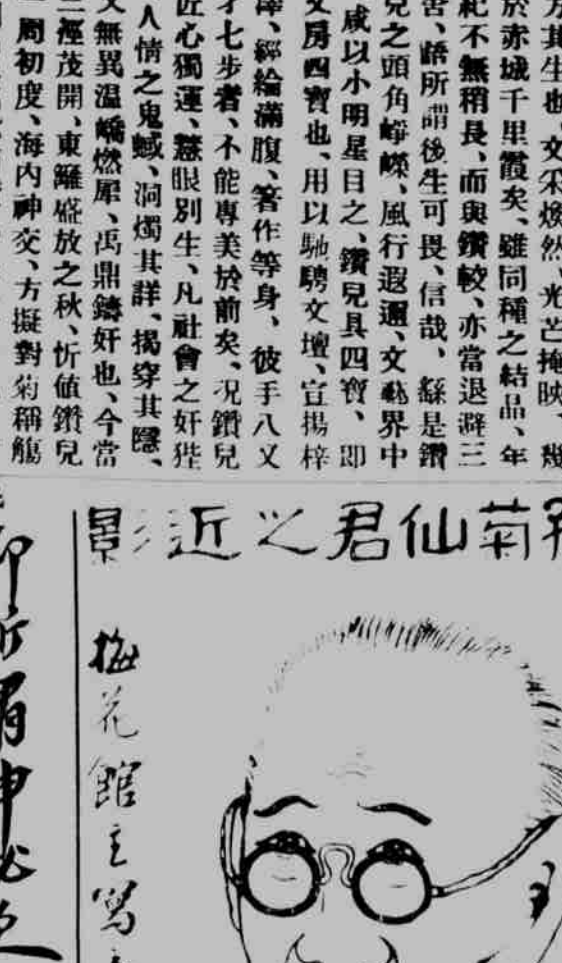 其生也、文采煥然、光芒掩映、幾
於赤城千里霞矣、雖同種之結晶、年
紀不無稍長、而與鑽較、亦當退避三
舍、諺所謂後生可畏、信哉、繇是鑽
兒之頭角崢嶸、風行遐邇、文藝界中
咸以小明星目之、鑽兒具四寶、即
文房四寶也、用以馳騁文壇、宣揚梓
澤、經綸滿腹、著作等身、彼手八叉
才七步者、不能專美於前矣、况鑽兒
匠心獨運、慧眼別生、凡社會之奸狴
人情之鬼蜮、洞燭其詳、揭穿其隱、
又無異溫嶠燃犀、禹鼎鑄奸也、今當
三徑茂開、東籬盛放之秋、忻値鑽兒
周初度、海內神交、方擬對菊稱觴
菊仙君之近影
梅花館主寫